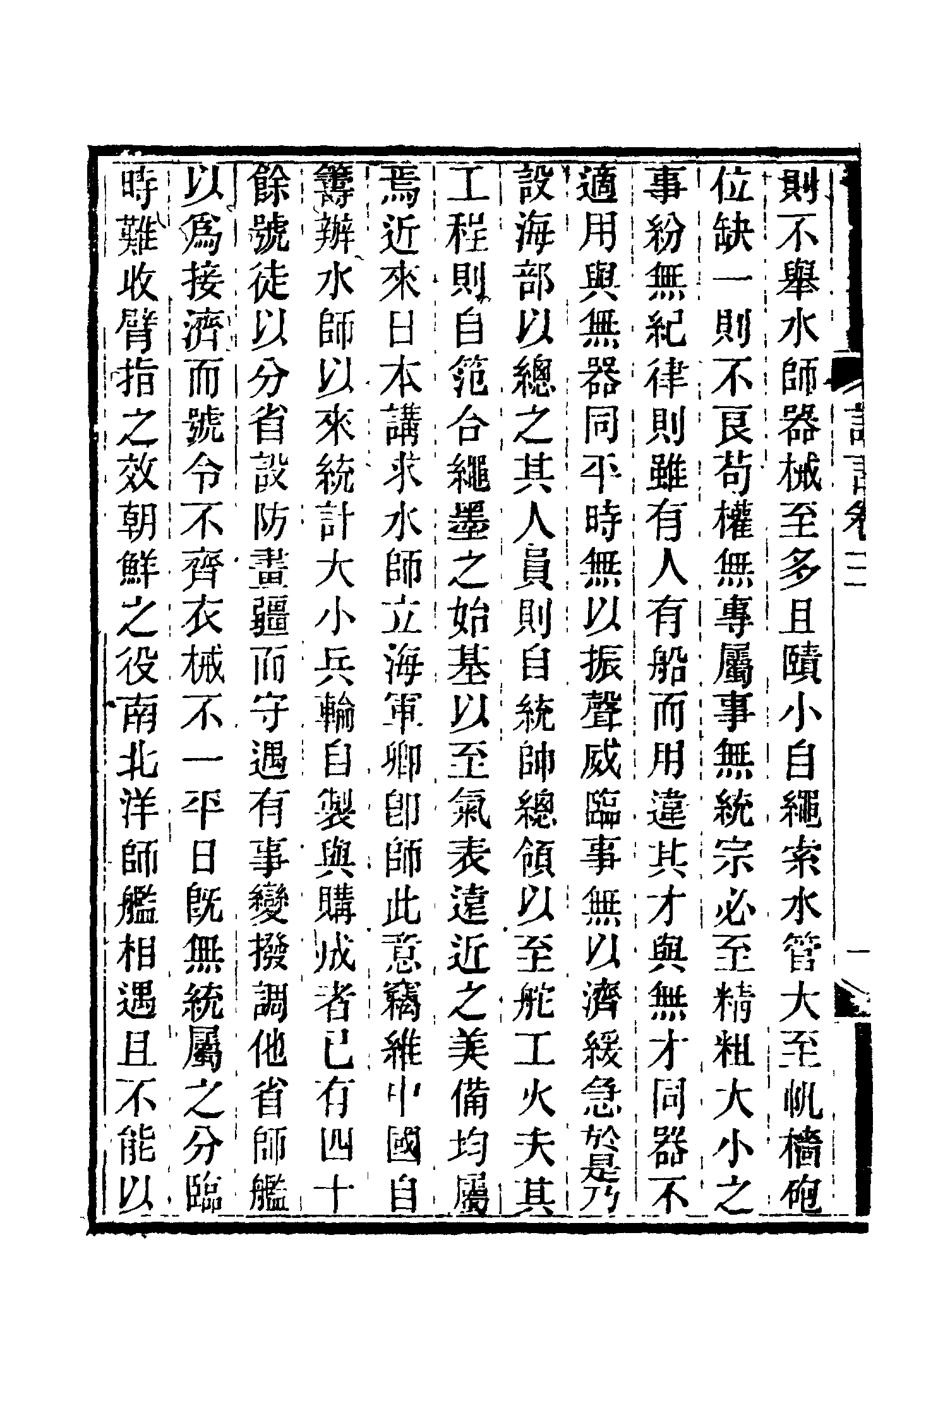 則不舉水師器械至多且賾小自繩索水管大至帆檣砲
位缺一則不良苟權無專屬事無統宗必至精粗大小之
事紛無紀律則雖有人有船而用違其才與無才同器不
適用與無器同平時無以振聲威臨事無以濟緩急於是乃
設海部以總之其人員則自統帥總領以至舵工火夫其
工程則自范合繩墨之始基以至氣表遠近之美備均屬
焉近來日本講求水師立海軍卿卽師此意竊維中國自
籌辦水師以來統計大小兵輪自製與購成者已有四十
餘號徒以分省設防畫疆而守遇有事變撥調他省師艦
以爲接濟而號令不齊衣械不一平日旣無統屬之分臨
時難收臂指之效朝鮮之役南北洋師艦相遇且不能以